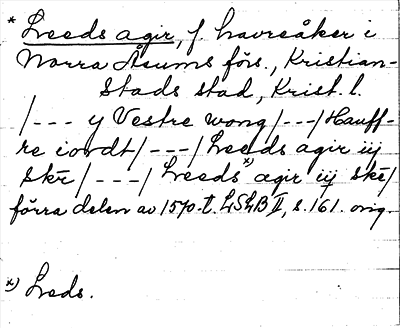 * Leeds agir, f. havreåker i
Norra Åsums förs., Kristian-
stads stad, Krist. l.
/--- y Vestre wong/---/Hauff-
re iordt/---/Leeds agir iij
skr̄/---/Leeds x) agir iij skr̄/
förra delen av 1570-t. LSLB II, s. 161. orig.
x) Leds.